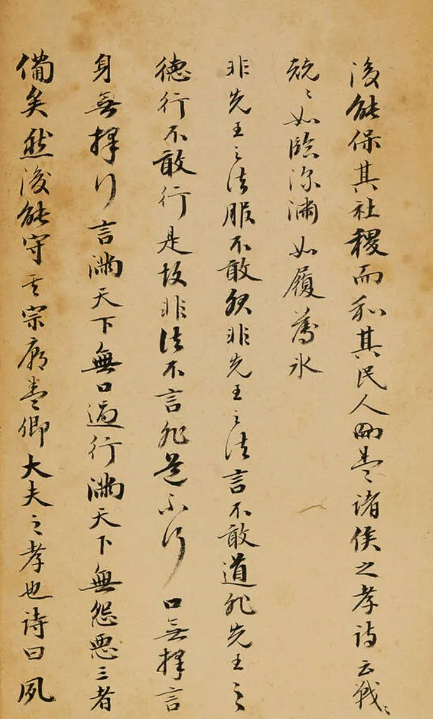 後能保其社稷而和其民人盖諸侯之孝詩云戰〻
兢〻如臨深淵如履薄氷
非先王之法服不敢服非先王之法言不敢道非先王之
德行不敢行是故非法不言非道不行口無擇言
身無擇行言滿天下無口過行滿天下無怨惡三者
備矣然後能守其宗廟盖卿大夫之孝也詩曰夙